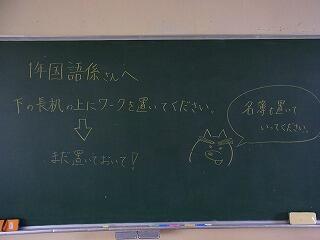 1年国語係さんへ
下の長机の上にワークを置いてください。
まだ置いておいて!
名簿も置いて
いってください。